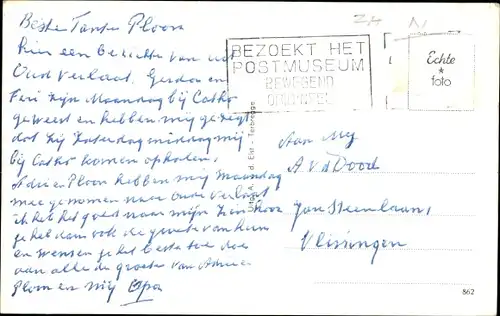 Beste Tante Ploon
hier een berichtje van uit
Oud Verlaat. Gerda en
Feri zijn Maandag bij Cathö
geweest en hebben mij gezegt
dat zij Zaterdag middag mij
bij Cathö komen ophalen.
Adri en Ploon hebben mij Maandag
mee genomen naar Oude Verlaat
ik heb het goed naar mijn zin hoor
je heb dan ook de groete van hun
en wensen je het beste toe dus
van alle de groeten van Adri en
Ploon en mij Opa
BEZOEKT HET
POSTMUSEUM
Echte
*
foto
Aan Mej
A v d Dood
Jan Steenlaan
Vlissingen
Terbregge
862